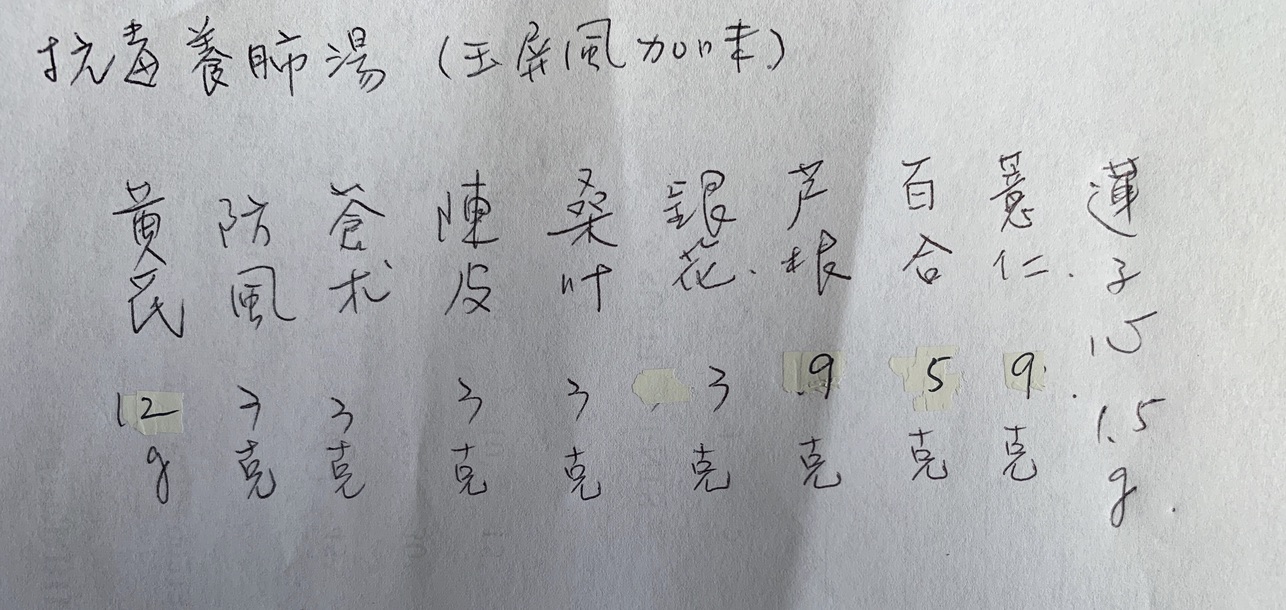 抗毒養肺湯（玉屏風加味）
黃芪 12g
防風 3克
蒼朮 3克
陳皮 3克
桑叶 3克
銀花. 3克
芦根 9克
百合 5克
薏仁. 9克
蓮子心 1.5g.